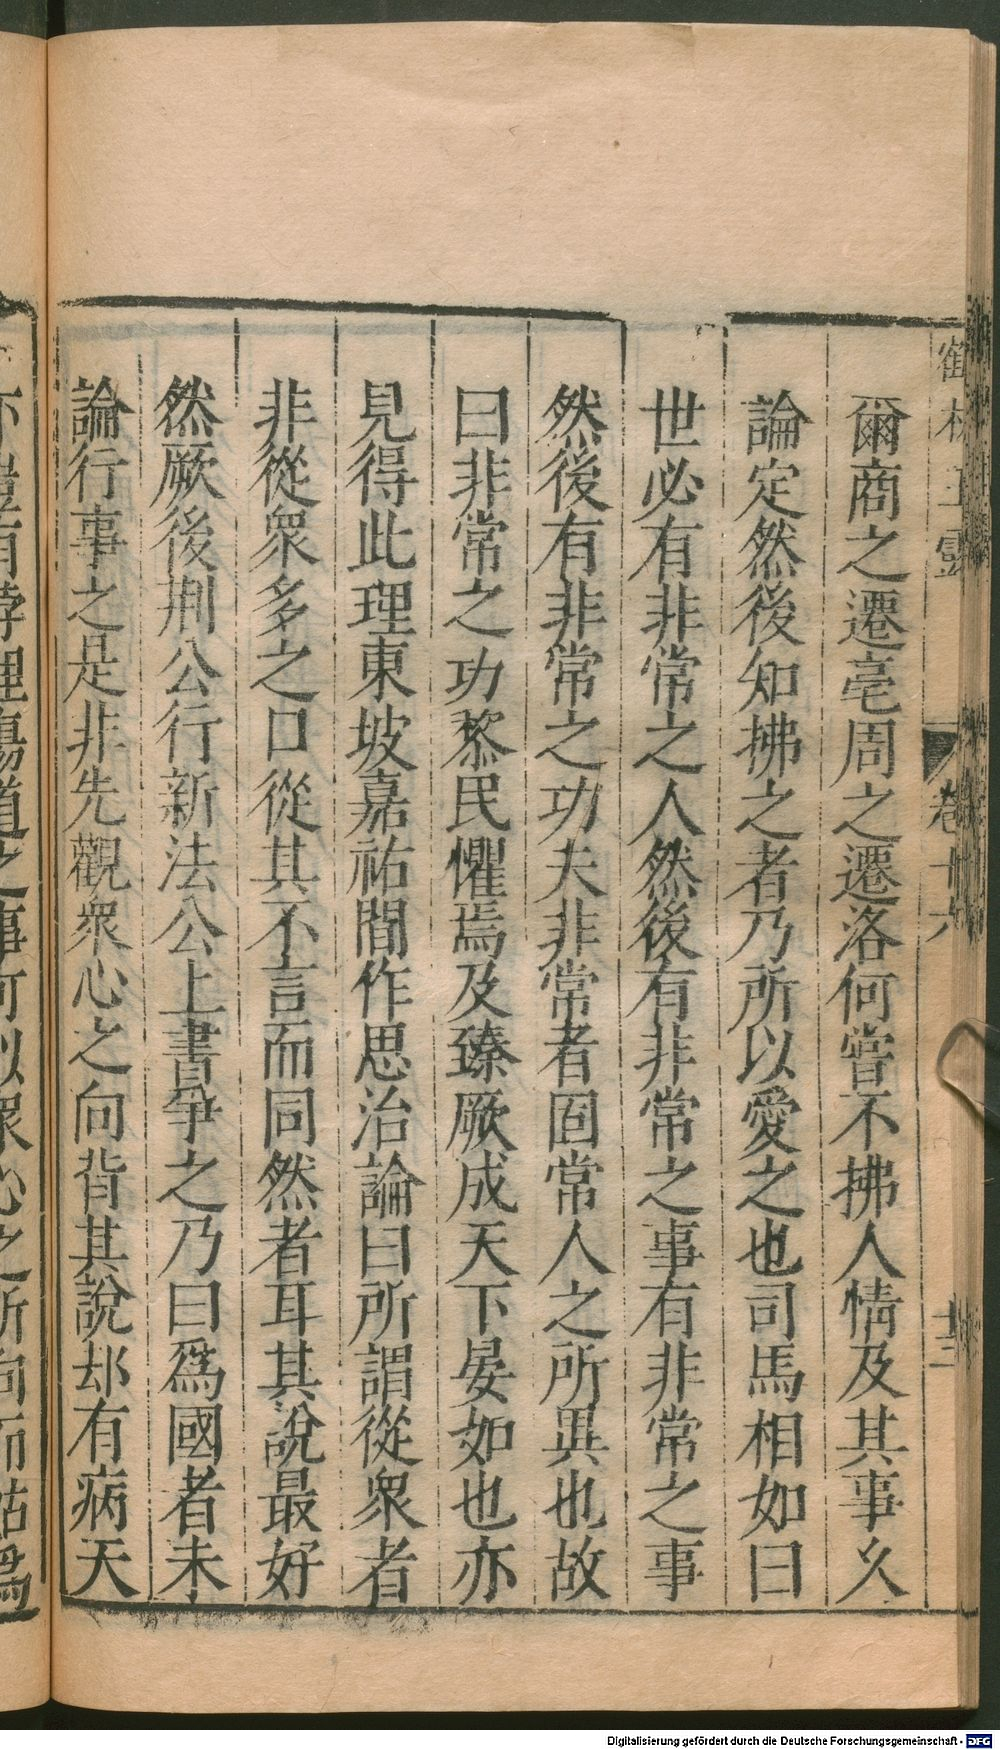 鶴林玉露 卷十六 十三
爾商之遷亳周之遷洛何嘗不拂人情及其事久
論定然後知拂之者乃所以愛之也司馬相如曰
世必有非常之人然後有非常之事有非常之事
然後有非常之功夫非常者固常人之所異也故
曰非常之功黎民懼焉及臻厥成天下晏如也亦
見得此理東坡嘉祐間作思治論曰所謂從衆者
非從衆多之口從其不言而同然者耳其說最好
然厥後荆公行新法公上書爭之乃曰爲國者未
論行事之是非先觀衆心之向背其說却有病天
下豈有悖理傷道之事可以衆心之所向而姑爲
Digitalisierung gefördert durch die Deutsche Forschungsgemeinschaft - DFG